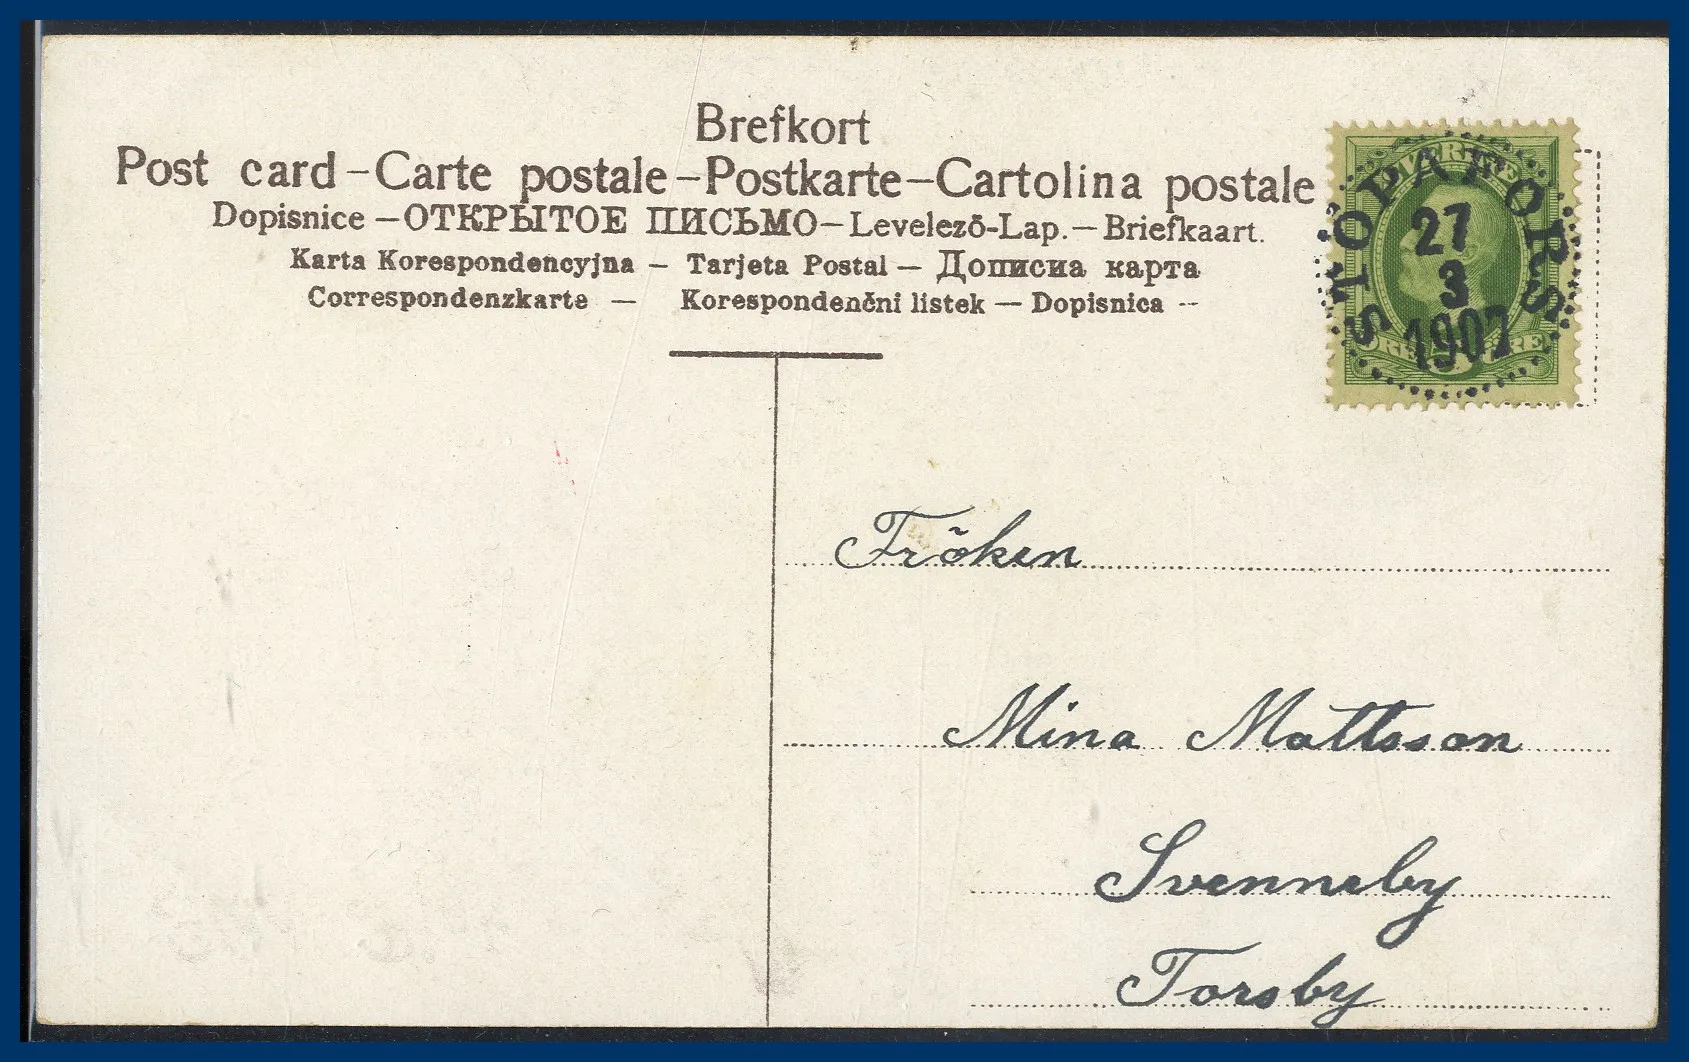 Brefkort
Post card – Carte postale – Postkarte – Cartolina postale
Dopisnice – ОТКРЫТОЕ ПИСЬМО – Levelezõ-Lap. – Briefkaart.
Karta Korespondencyjna – Tarjeta Postal – Дописна карта
Correspondenzkarte – Korespondenčni listek – Dopisnica --
STOPAFORS
27
3
1907
ÖRE 5 ÖRE
Fröken
Mina Mattsson
Svenneby
Torsby